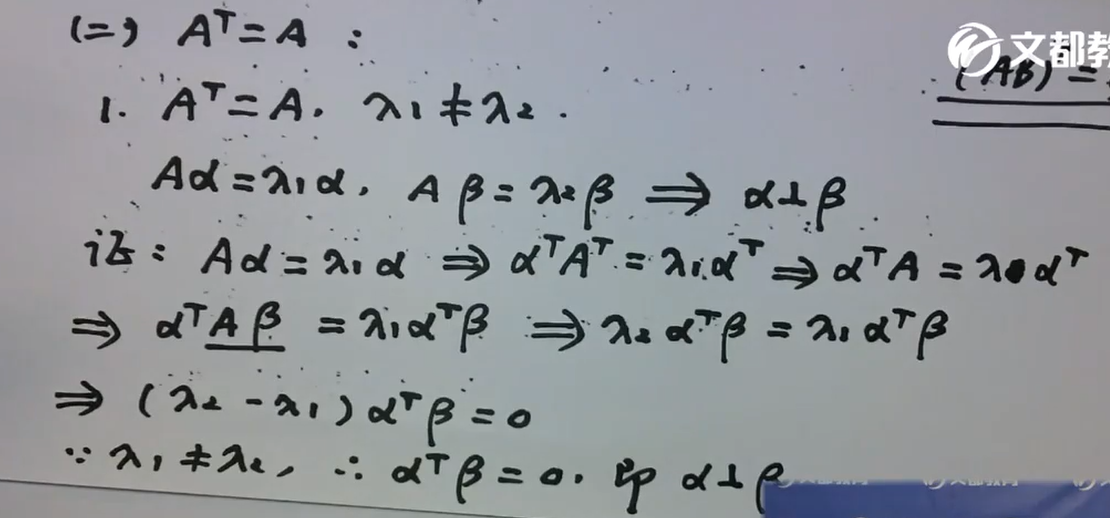 (二) Aᵀ=A :
文都教
(AB)ᵀ=
1. Aᵀ=A. λ₁≠λ₂.
Aα=λ₁α. Aβ=λ₂β ⇒ α⊥β.
证: Aα=λ₁α ⇒ αᵀAᵀ=λ₁αᵀ ⇒ αᵀA=λ αᵀ
⇒ αᵀAβ=λ₁αᵀβ ⇒ λ₂αᵀβ=λ₁αᵀβ
⇒ (λ₂-λ₁)αᵀβ=0
∵ λ₁≠λ₂, ∴ αᵀβ=0. 即 α⊥β